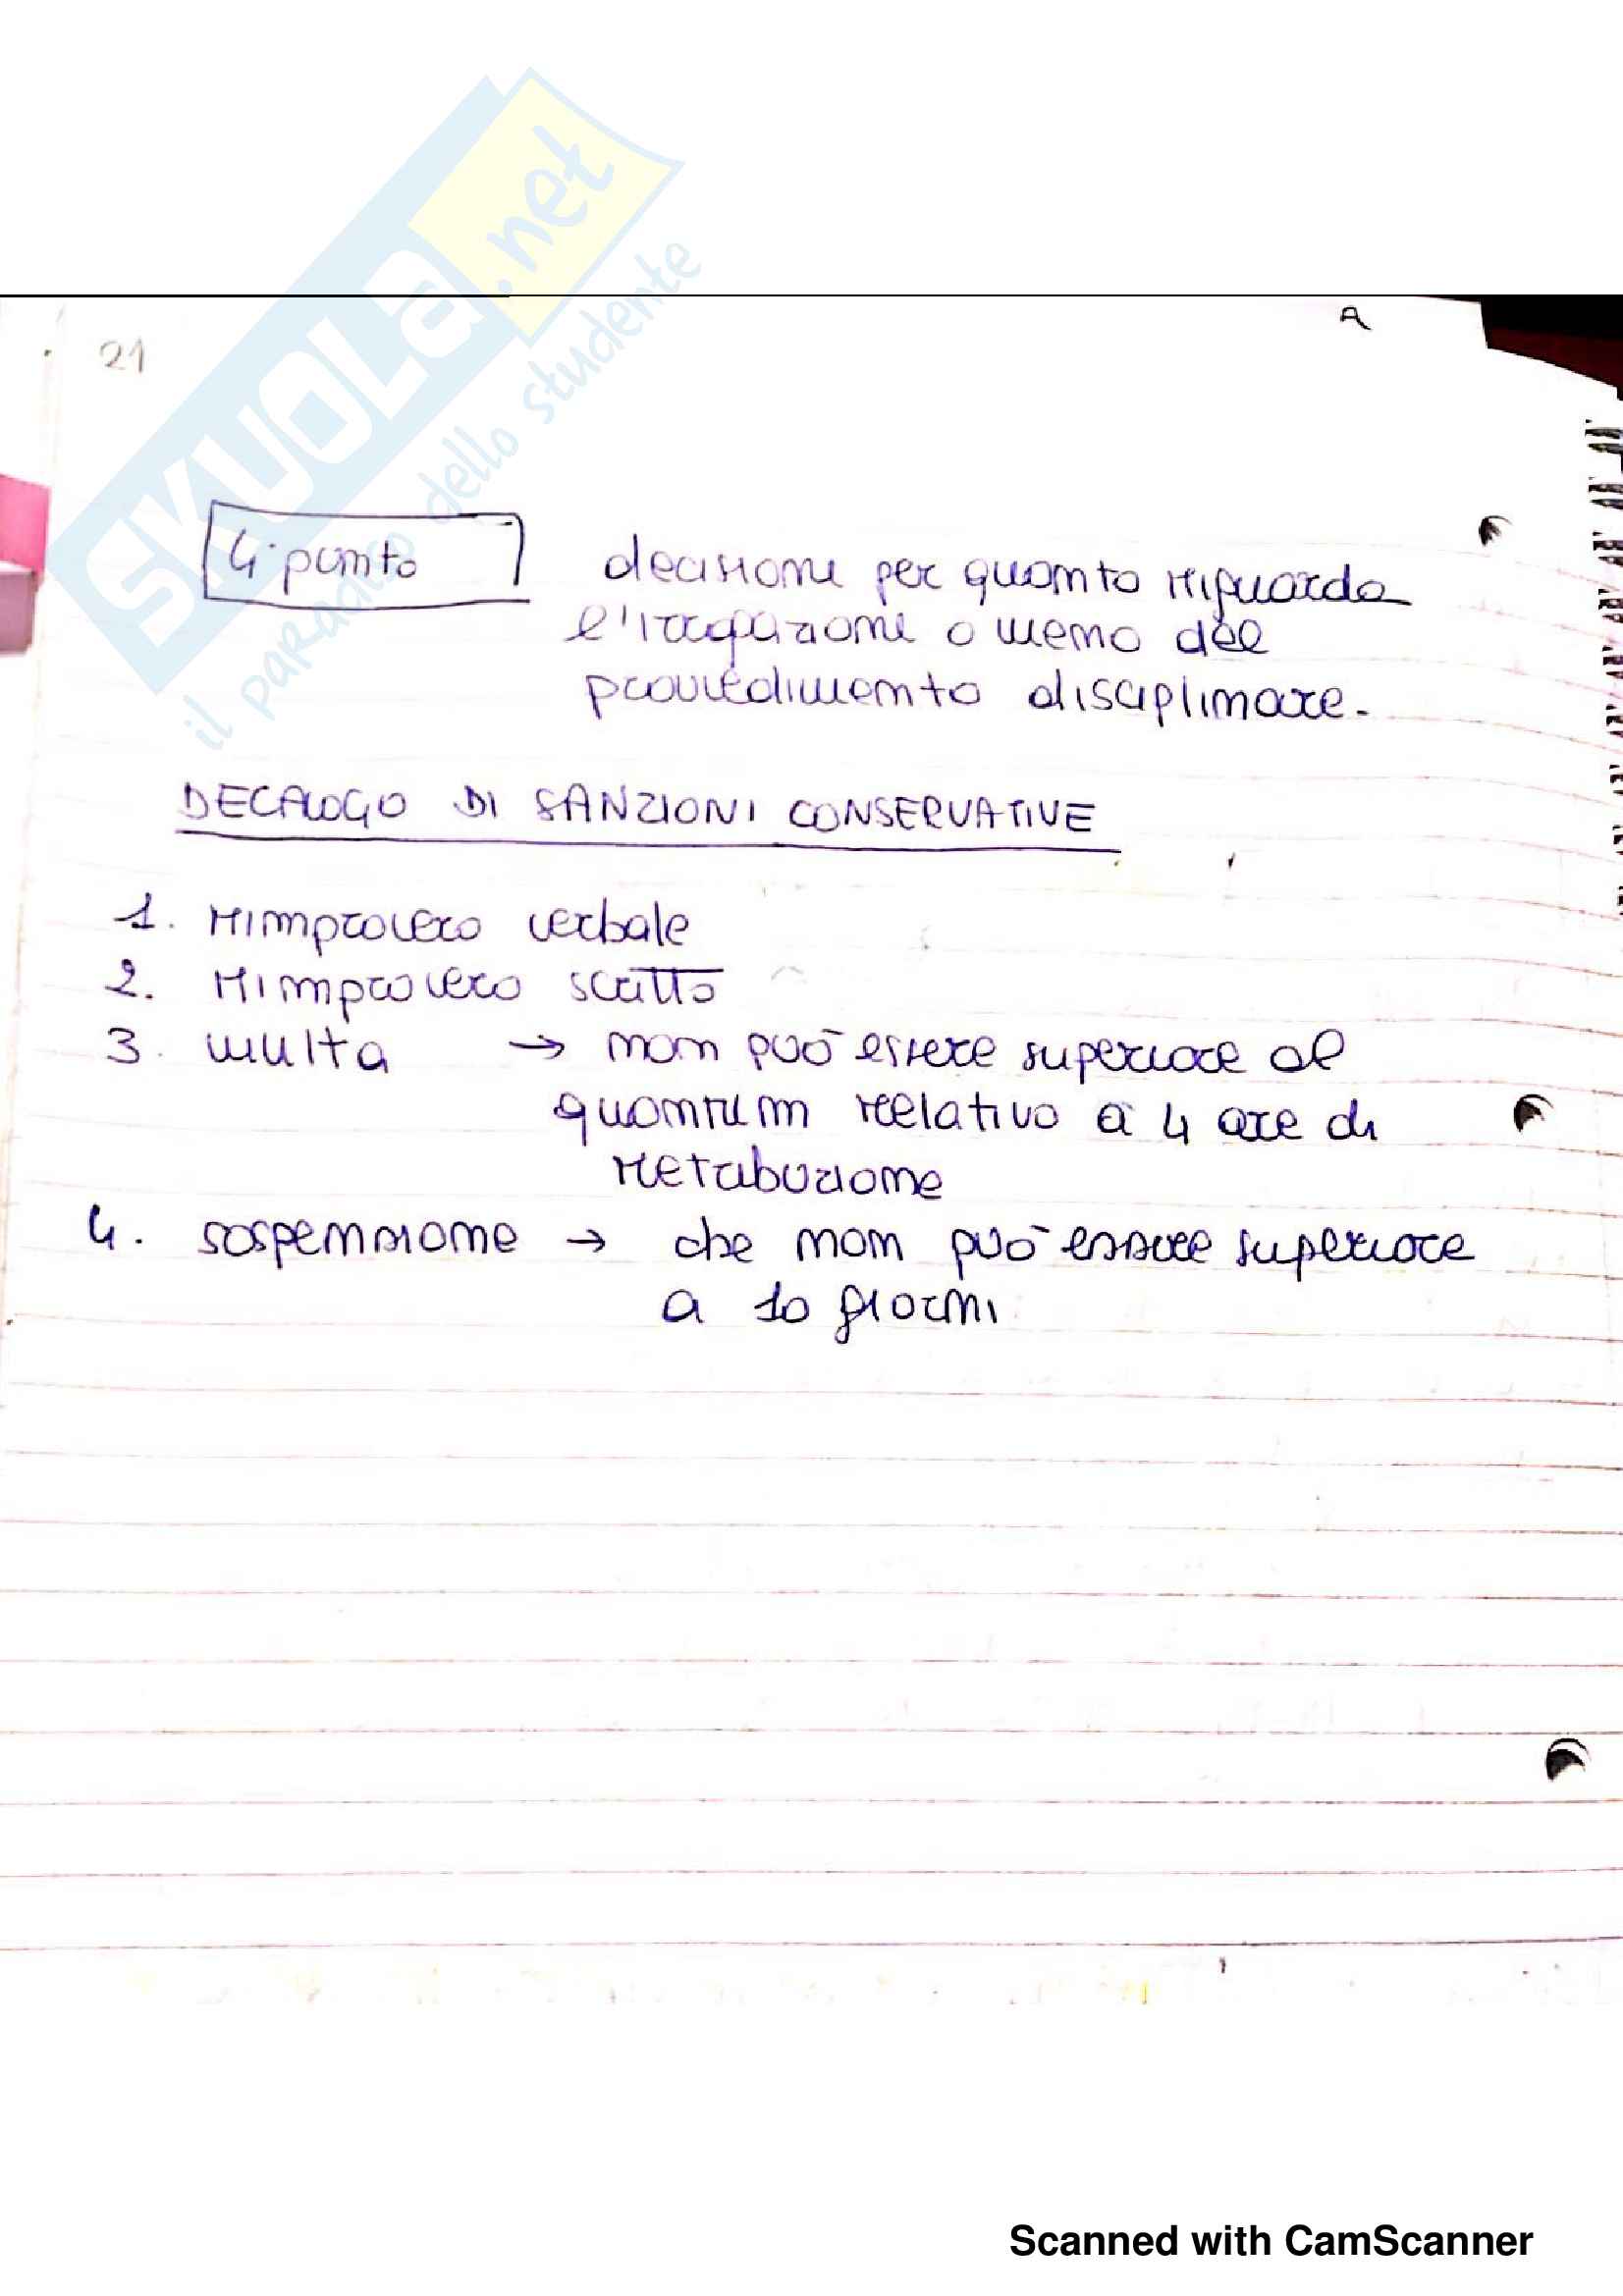 SKUOLa.net
il paradiso dello studente
21
A
4° punto
decisione per quanto riguarda
l'irrogazione o meno del
provvedimento disciplinare.
DECALOGO DI SANZIONI CONSERVATIVE
1. rimprovero verbale
2. rimprovero scritto
3. multa → non può essere superiore al
quantum relativo a 4 ore di
retribuzione
4. sospensione → che non può essere superiore
a 10 giorni
Scanned with CamScanner